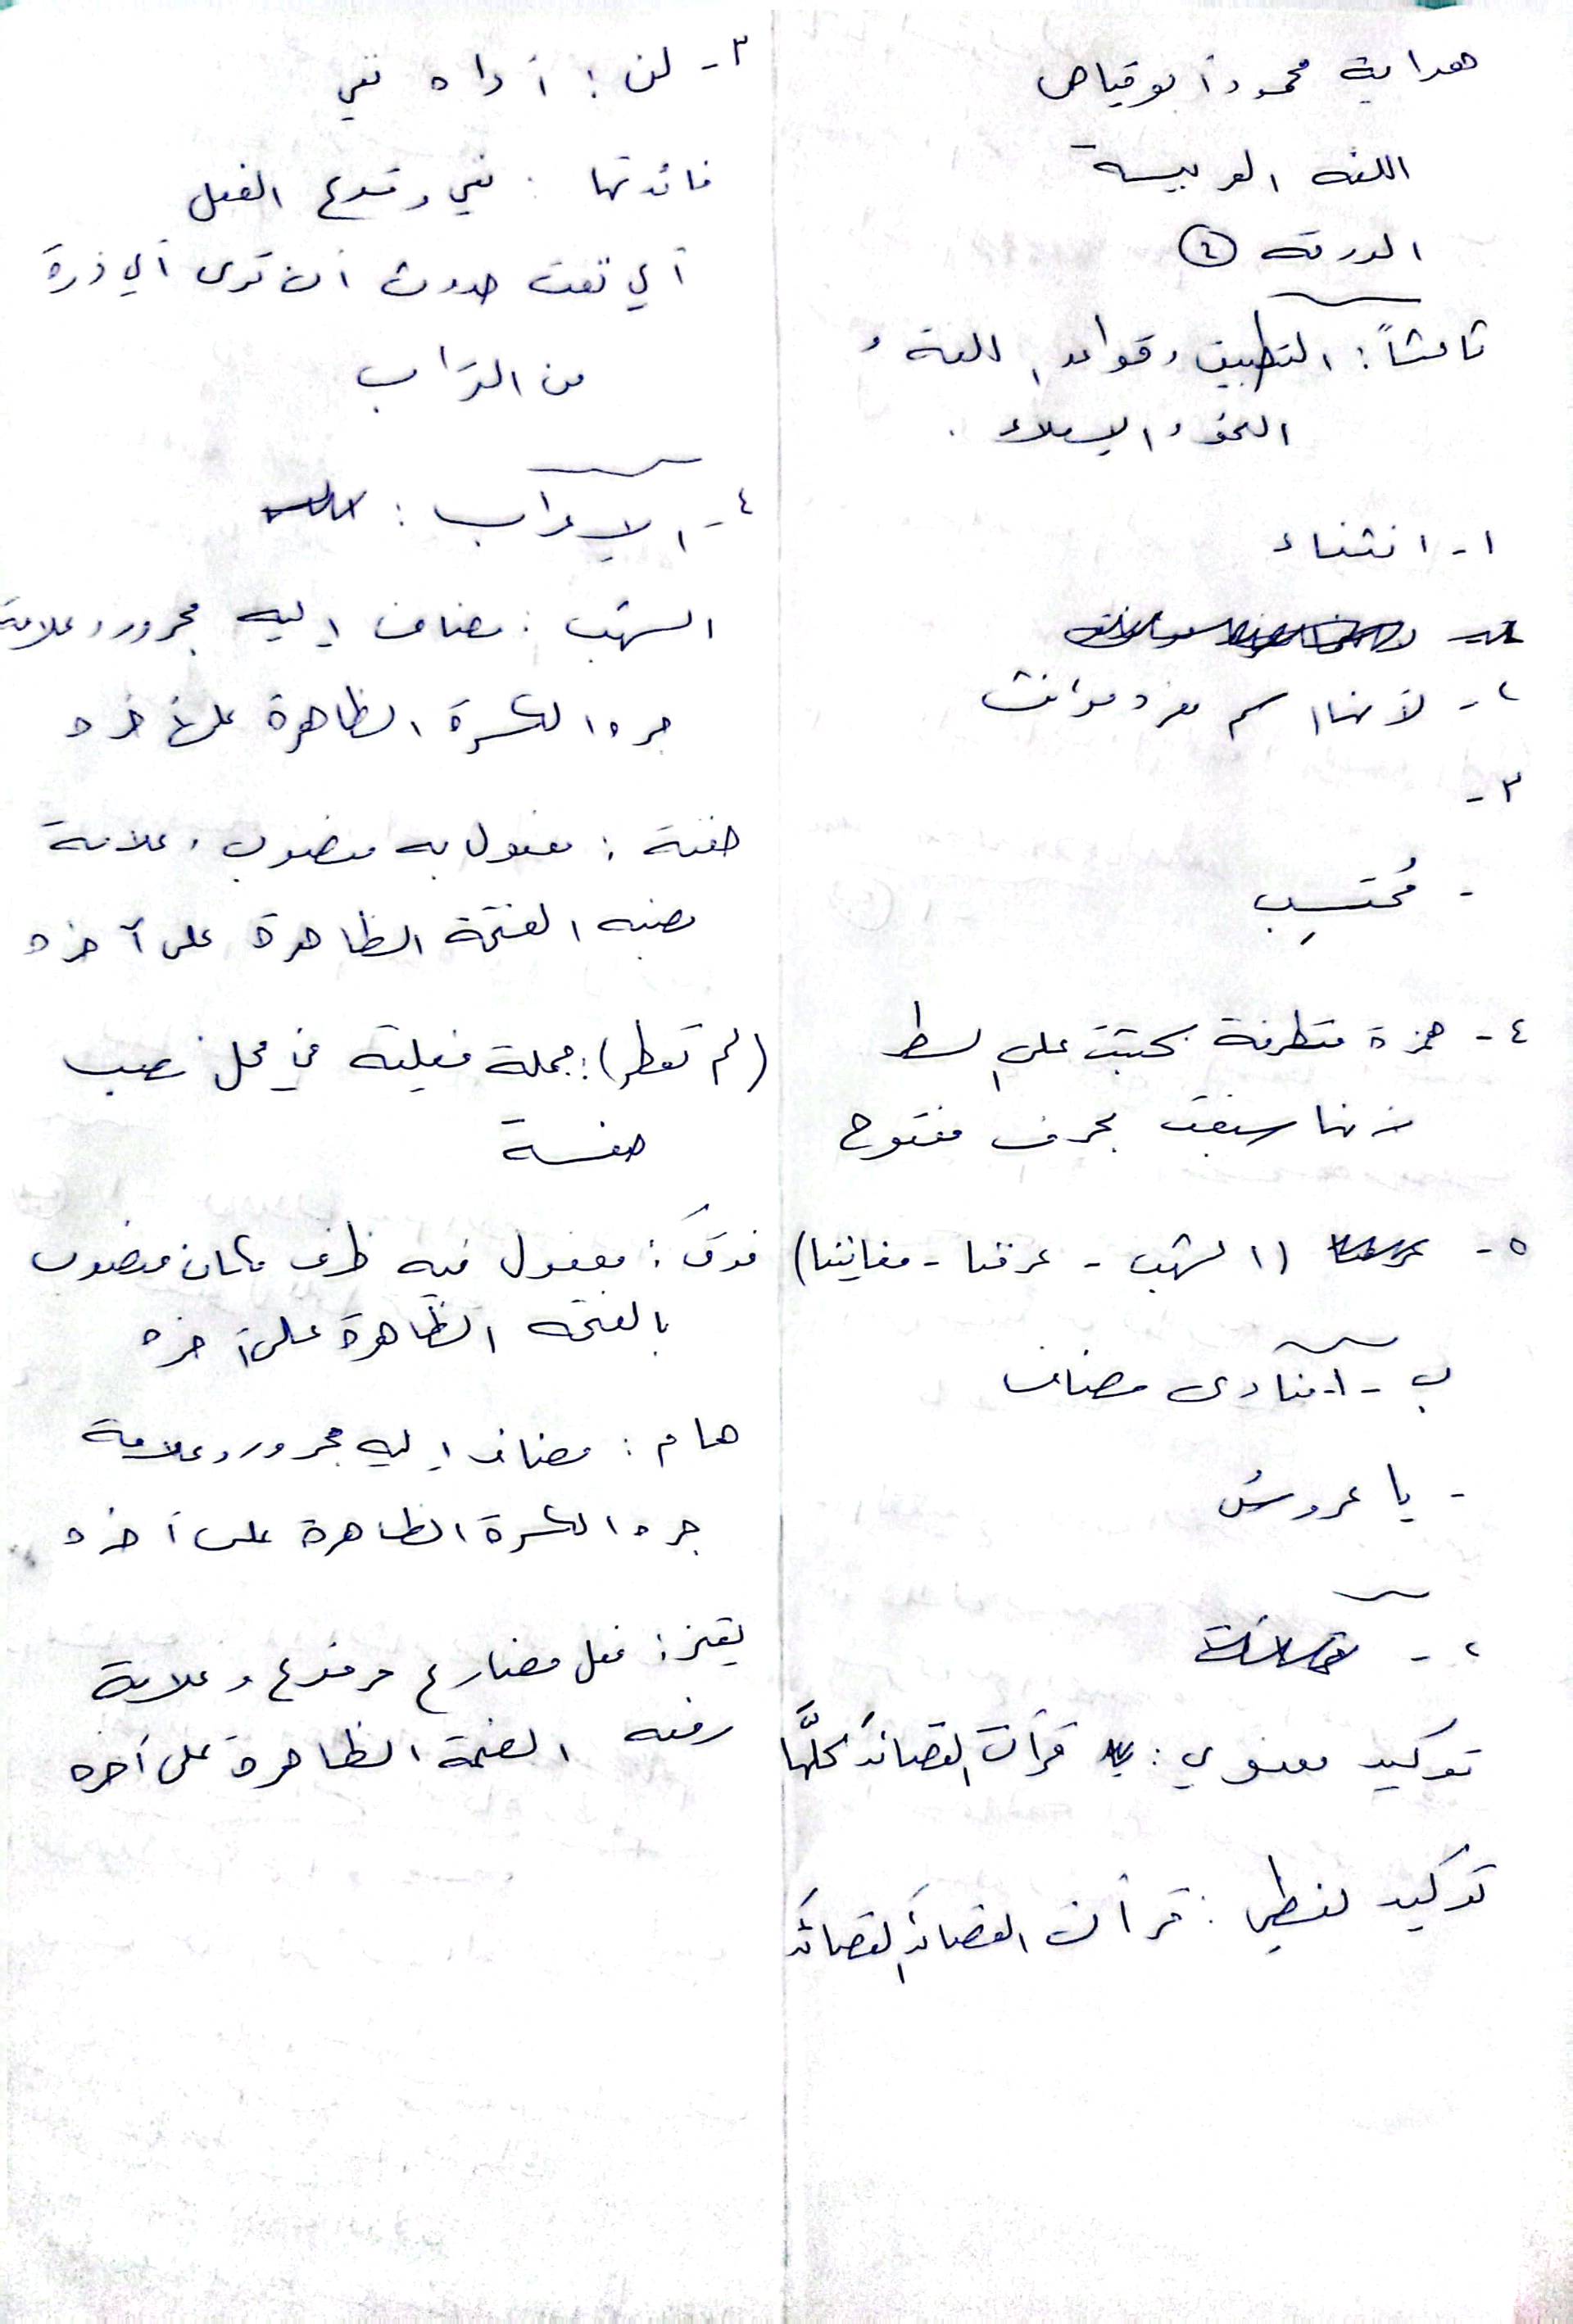 هداية محمود أبو قياص
اللغة العربية
الورقة ٤
ثالثاً: التطبيق وقواعد اللغة و
النحو والإملاء.
١- انثناء
٢- لأنها اسم مفرد مؤنث
٣-
- مُحتسِب
٤- همزة متطرفة كتبت على السطر
لأنها سبقت بحرف مفتوح
٥- (الشهب - عرفنا - مغانينا)
ب - ١- منادى مضاف
- يا عروسُ
٢-
توكيد معنوي: قرأت القصائدَ كلَّها
توكيد لفظي: قرأت القصائدَ القصائدَ
٣- لن: أداه نفي
فائدتها: نفي وقوع الفعل
أي نفت حدوث أن ترى أي ذرة
من التراب
٤- الإعراب:
الشهب: مضاف إليه مجرور وعلامة
جره الكسرة الظاهرة على آخره
حفنة: مفعول به منصوب وعلامة
نصبه الفتحة الظاهرة على آخره
(لم تعطر): جملة فعلية في محل نصب
صفة
فوقَ: مفعول فيه ظرف مكان منصوب
بالفتحة الظاهرة على آخره
هام: مضاف إليه مجرور وعلامة
جره الكسرة الظاهرة على آخره
يقفز: فعل مضارع مرفوع وعلامة
رفعه الضمة الظاهرة على آخره